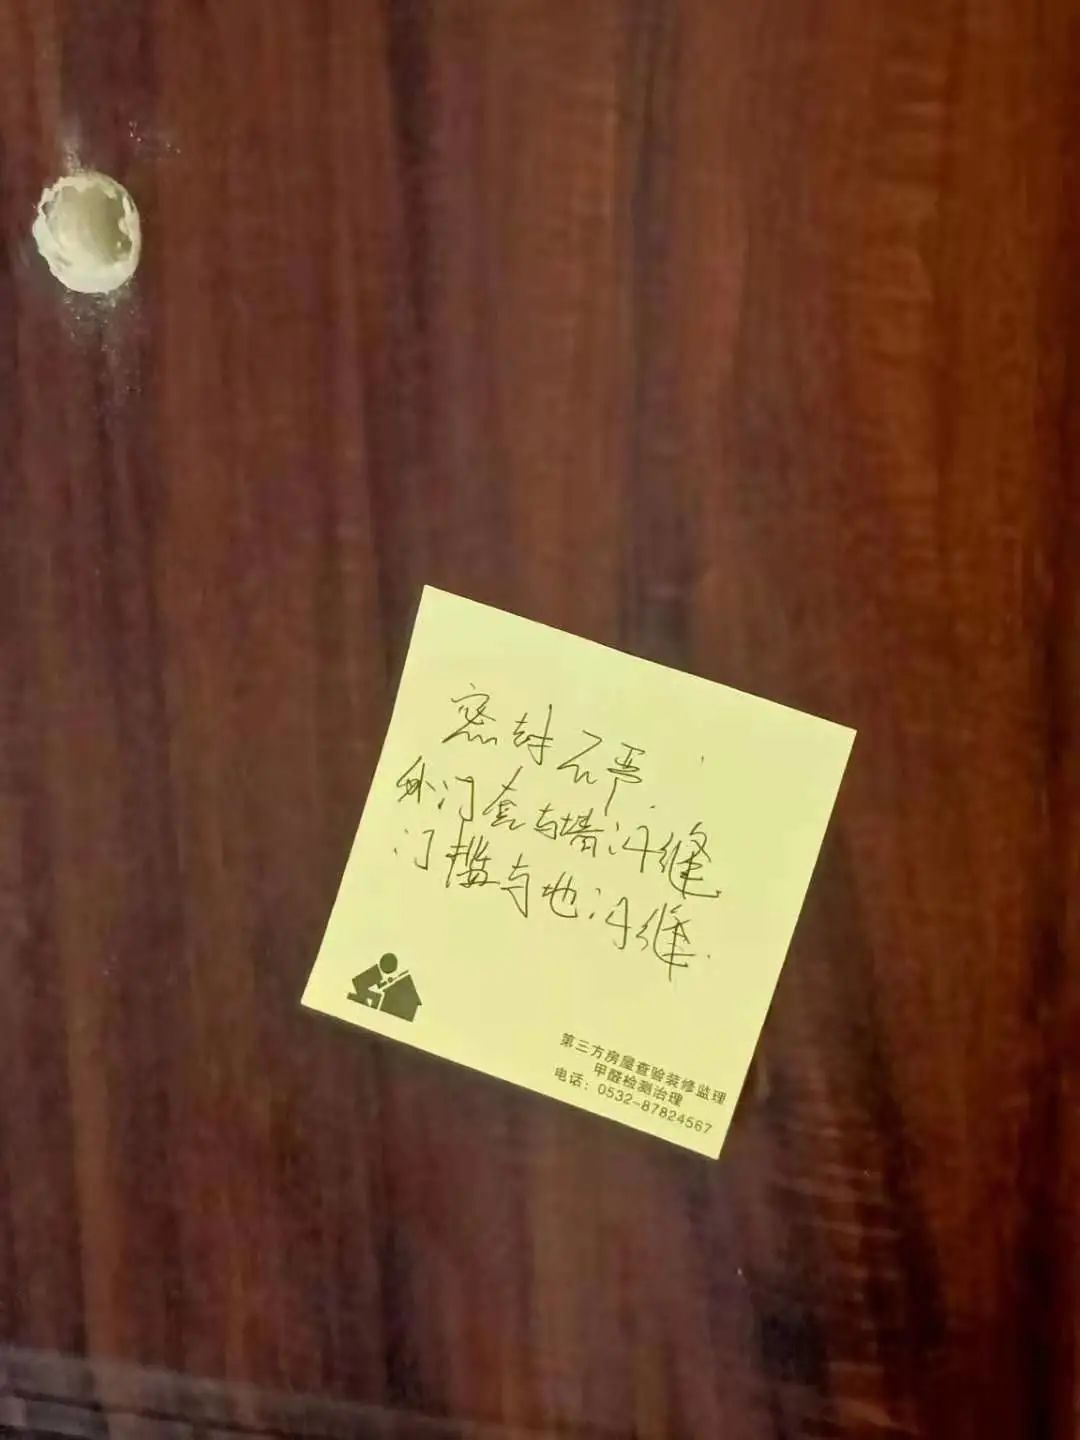 密封不严.
外门套与墙沟缝
门槛与地沟缝.
第三方房屋查验装修监理
甲醛检测治理
电话：0532-87824567